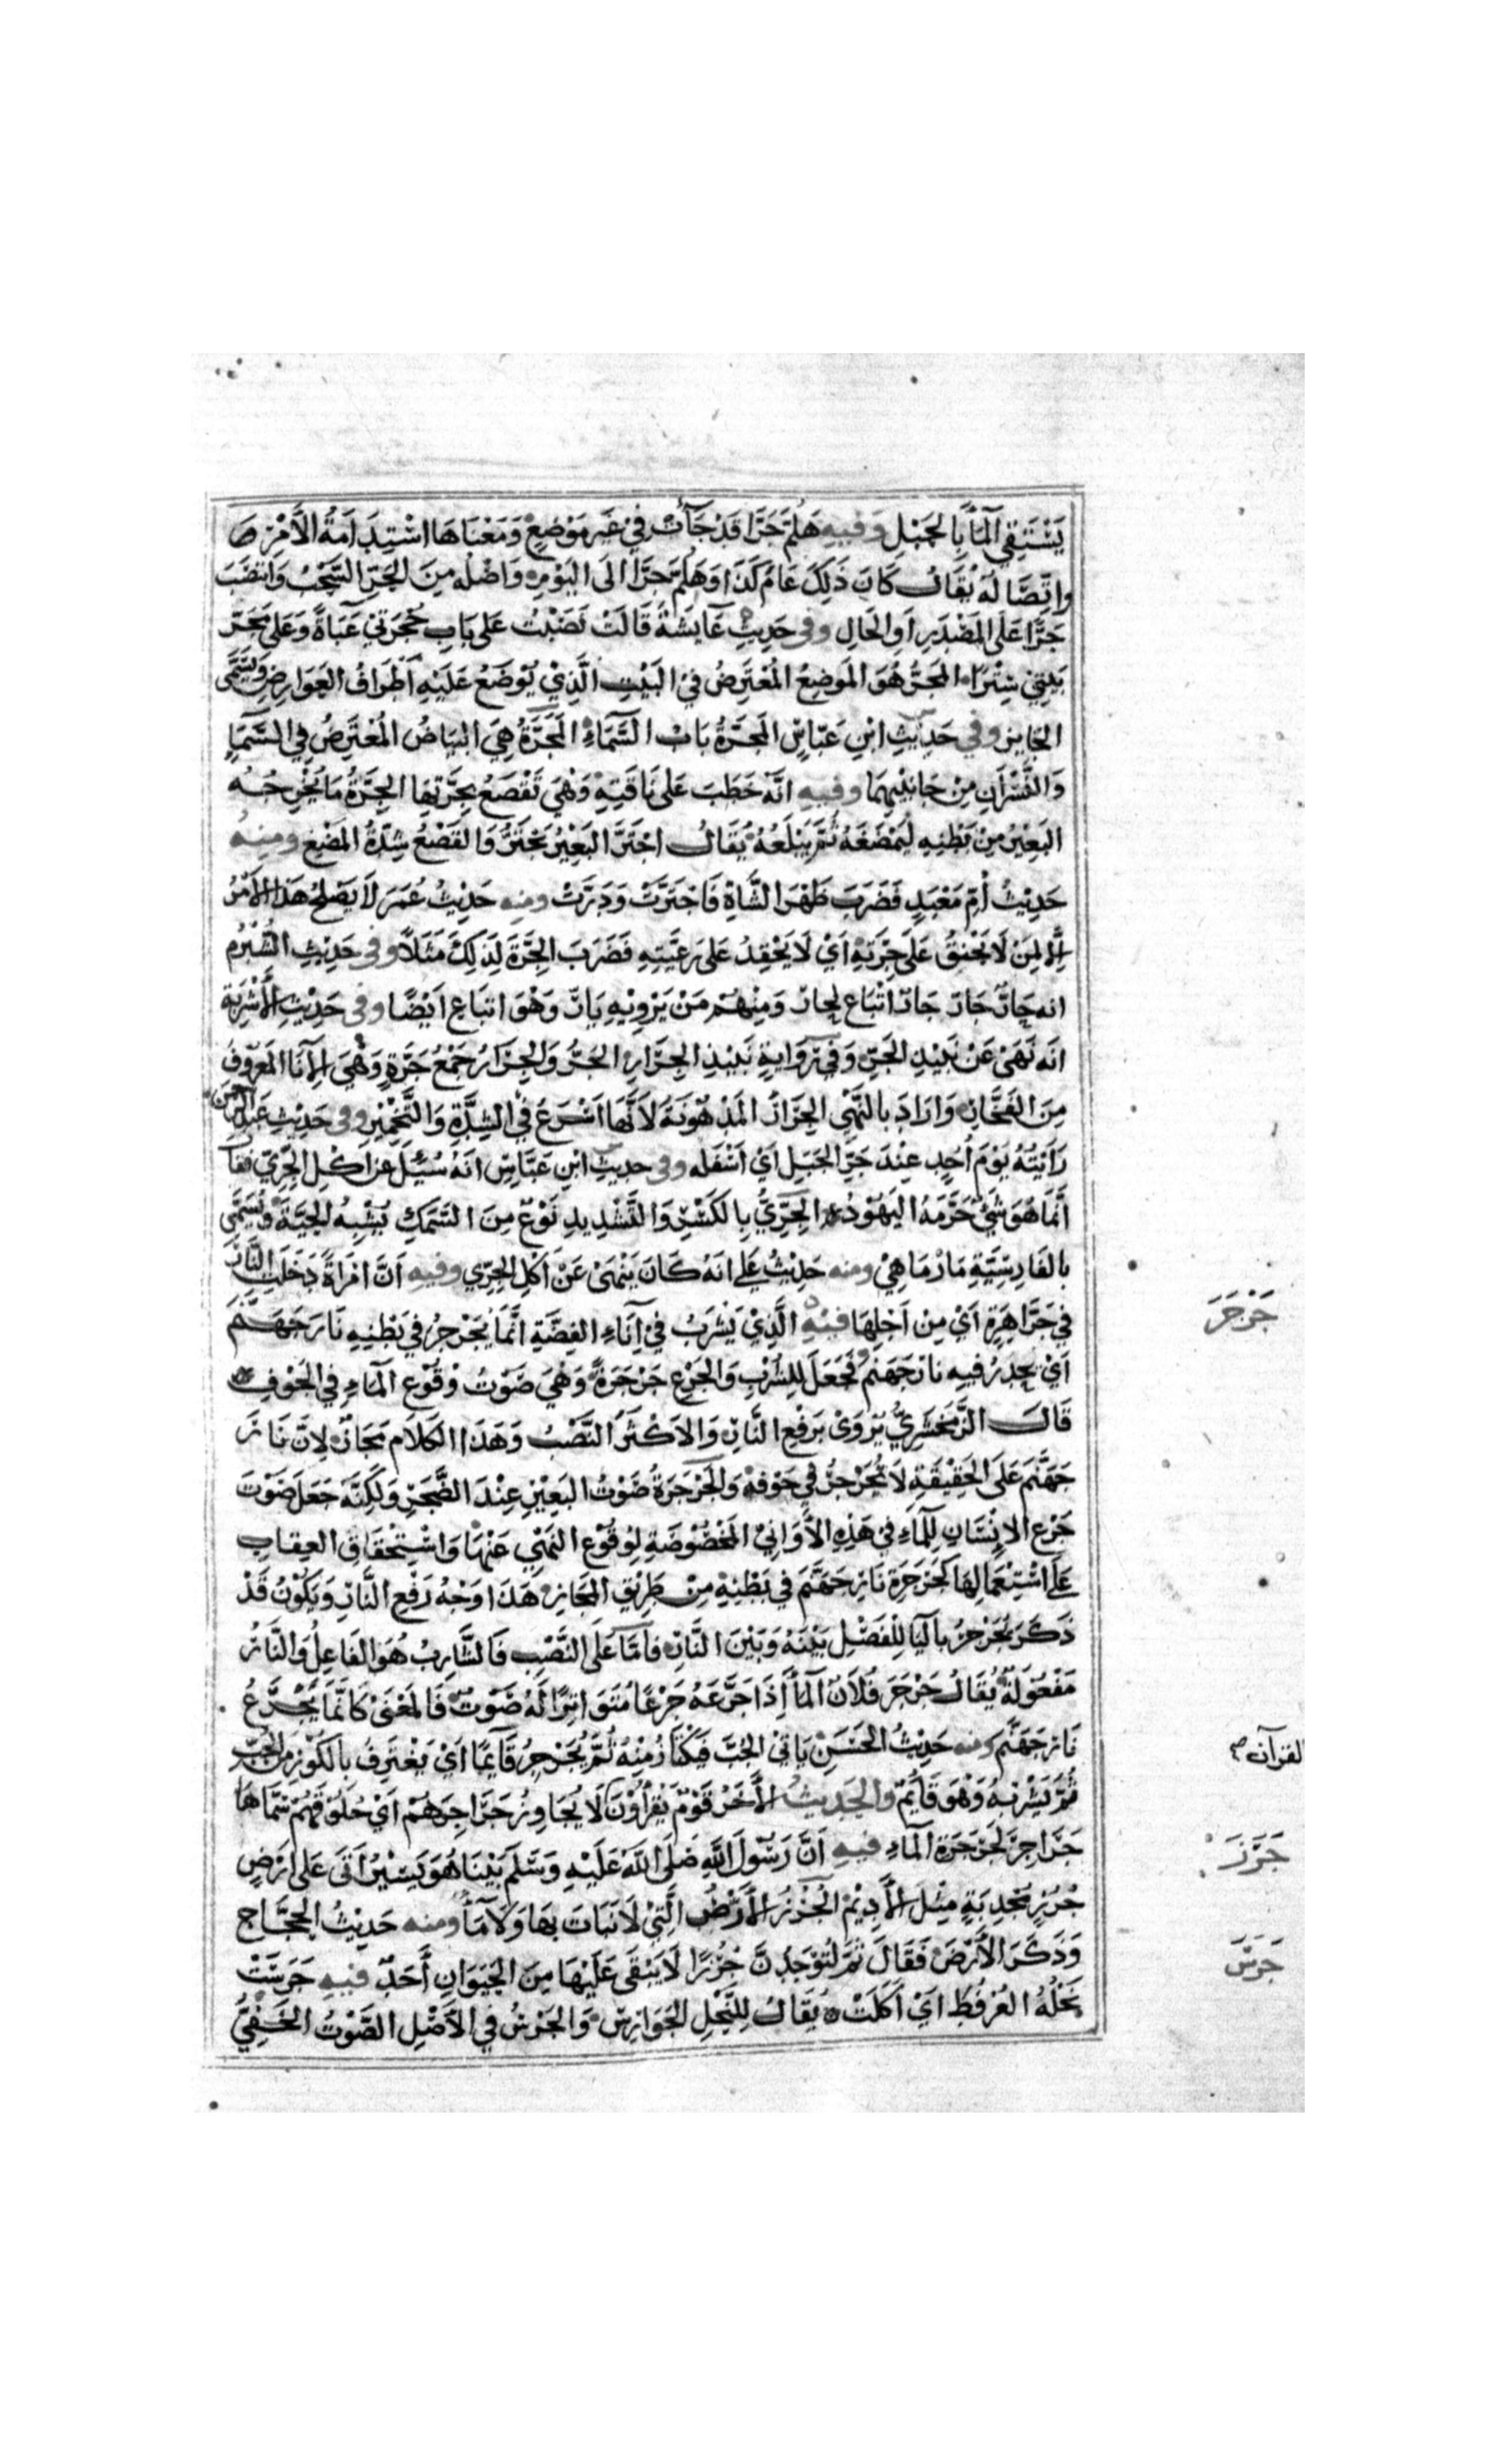 يَسْتَقِي الْمَاءَ بِالحَبْلِ وَفِيهِ هَلُمَّ جَرًّا قَدْ جَآءَتْ فِي غَيرِ مَوْضِعٍ وَمَعْنَاهَا اسْتِدَامَةُ الأَمْرِ
وَاتِّصَالُهُ يُقَالُ كَانَ ذَلِكَ عَامَ كَذَا وَهَلُمَّ جَرًّا الَى اليَوْمِ وَاصْلُهُ مِنَ الجَرِّ السَّحْبُ وَانتَصَبَ
جَرًّا عَلَى المَصْدَرِ اَوِ الحَالِ وفى حَدِيثِ عَآيشَةَ قَالَتْ نَصَبْتُ عَلى بَابِ حُجْرَتِي عَبَآةً وَعَلى مَجَرِّ
بَيْتِي سِتْرًا المَجَرُّ هُوَ المَوضِعُ المُعْتَرِضُ فِي البَيْتِ الَّذِيْ يُوْضَعُ عَلَيْهِ أَطْرَافُ العَوَارِضِ وَيُسَمَّى
الجَايز وفي حَدِيْثِ ابْنِ عَبّاسٍ المَجَرَّةُ بَابُ السَّمَآءِ المَجَرَّةُ هِيَ البَيَاضُ المُعْتَرِضُ فِي السَّمَآءِ
وَالنَّسْرَانِ مِنْ جَانِبَيْهِمَا وفيهِ انَّهُ خَطَبَ عَلى نَاقَتِهِ وَهْيَ تَقْصَعُ بِجِرَّتِهَا الجِرَّةُ مَا يُخْرِجُهُ
البَعِيْرُ مِنْ بَطْنِهِ لِيَمْضَغَهُ ثُمَّ يَبْلَعُهُ يُقَالُ اجْتَرَّ البَعِيْرُ يَجْتَرُّ وَالقَصْعُ شِدَّةُ المَضْغِ ومنهُ
حَدِيْثُ أُمِّ مَعْبَدٍ فَضَرَبَ ظَهْرَ الشَّاةِ فَاجْتَرَّتْ وَدَرَّتْ ومنه حَدِيْثُ عُمَرَ لَا يَصْلُحُ هَذَا الأَمْرُ
إِلَّا لِمَنْ لَا يَحْنِقُ عَلَى جِرَّتِهِ اَيْ لَا يَحْقِدُ عَلى رَعِيَّتِهِ فَضَرَبَ الجِرَّةَ لِذَلِكَ مَثَلًا وفى حَدِيْثِ الشُّبْرُمِ
انه حَارٌّ جَارٌّ جَارٌّ اتْبَاع لِحَارّ وَمِنْهُمْ مَنْ يَرْوِيْهِ يَارّ وَهْوَ اتبَاع اَيْضًا وفى حَدِيْثِ الأَشْرِبَةِ
انَه نَهَىْ عَنْ نَبِيْذِ الجَرِّ وَفِي رِوَايَةٍ نَبِيْذِ الجِرَارِ الجَرُّ وَالجِرَارُ جَمْعُ جَرَّةٍ وَهْيَ الإِنَآءُ المَعْرُوفُ
مِنَ الفَخَّارِ وَارَادَ بِالنَّهْيِ الجِرَارَ المَدْهُوْنَةَ لأَنَّهَا اَسْرَعُ فِي الشِّدَّةِ وَالتَّخْمِيْرِ وفى حَدِيْثِ عَبْدِ الرَّحْمَنِ
رَايْتُهُ يَوْمَ أُحُدٍ عِنْدَ جَرِّ الجَبَلِ اَيْ اَسْفَلِه وفى حديثِ ابْنِ عَبَّاسٍ انَهُ سُئِلَ عن اكْلِ الجِرِّيِّ فقَالَ
إِنَّمَا هُوَ شَيْءٌ حَرَّمَهُ اليَهُوْدُ الجِرِّيُّ بِالكَسْرِ وَالتَّشْدِيدِ نَوْعٌ مِنَ السَّمَكِ يُشْبِهُ الحَيَّةَ وَيُسَمَّى
بالفَارِسِيَّةِ مَارْمَاهِيْ ومنه حَدِيْثُ عَلي انَهُ كَانَ يَنْهَىْ عَنْ اَكْلِ الجِرِّي وفيهِ اَنَّ امْرَاةً دَخَلَتِ النَّارَ
فِي جَرَّا هِرَّةٍ اَيْ مِنْ اَجْلِهَا فِيْهِ الَّذِيْ يَشْرَبُ فِيْ اِنَآءِ الفِضَّةِ إِنَّمَا يُجَرْجِرُ فِي بَطْنِهِ نَارَ جَهَنَّمَ
اَيْ يَحْدُرُ فيه نارَ جَهَنَّمَ فَجَعَلَ لِلشُّرْبِ وَالجَرْعِ جَرْجَرَةً وَهْيَ صَوْتُ وُقُوْعِ المَآءِ فِي الجَوْفِ
قَالَ الزَّمَخْشَرِيُّ يُرْوَىْ بِرَفْعِ النَّارِ وَالاَكْثَرُ النَّصْبُ وَهَذَا الكَلَامُ مَجَازٌ لِانَّ نَارَ
جَهَنَّمَ عَلَى الحَقِيْقَةِ لَا تُجَرْجِرُ فِي جَوْفِهِ وَالجَرْجَرَةُ صَوْتُ البَعِيْرِ عِنْدَ الضَّجَرِ وَلَكِنَّهُ جَعَلَ صَوْتَ
جَرْعِ الاِنْسَانِ لِلْمَآءِ فِي هَذِهِ الأَوَانِيْ المَخْصُوْصَةِ لِوُقُوْعِ النَهْيِ عَنْهَا وَاسْتِحْقَاقِ العِقَابِ
عَلَى اسْتِعْمَالِهَا كَجَرْجَرَةِ نَارِ جَهَنَّمَ فِي بَطْنِهِ مِنْ طَرِيْقِ المَجَازِ هَذَا وَجْهُ رَفْعِ النَّارِ وَيَكُوْنُ قَدْ
ذَكَرَ يُجَرْجِرُ بِاليَا لِلْفَصْلِ بَيْنَهُ وَبَيْنَ النَّارِ فَامَّا عَلَى النَّصْبِ فَالشَّارِبُ هُوَ الفَاعِلُ وَالنَّارُ
مَفْعُوْلَةٌ يُقَالُ جَرْجَرَ فُلَانٌ المَآءَ إِذَا جَرَعَهُ جَرْعًا مُتَوَاتِرًا لَهُ صَوْتٌ فَالمَعْنَىْ كَانَّمَا يَجْرَعُ
نَارَ جَهَنَّمَ ومنه حَدِيْثُ الحَسَنِ يَاتِي الحُبَّ فَيَكْتَازُ مِنْهُ ثُمَّ يُجَرْجِرُ قَآيِمًا اَيْ يَغْتَرِفُ بالكُوْزِ مِنَ الحُبِّ
ثُمَّ يَشْرَبُهُ وَهْوَ قَآيِمٌ والحَدِيثُ الأَخَرُ قَوْمٌ يَقْرَأُوْنَ لَا يُجَاوِزُ جَرَاجِرَهُمْ اَيْ حُلُوْقَهُمْ سَمَّاهَا
جَرَاجِرَ لِجَرْجَرَةِ المَآءِ فيهِ اَنَّ رَسُوْلَ اللَّهِ صَلَى اللَّهُ عَلَيْهِ وَسَلَّمَ بَيْنَا هُوَ يَسِيْرُ اَتَى عَلى اَرْضٍ
جُرُزٍ مُجْدِبَةٍ مِثْلَ الأَدِيْمِ الجُرُزُ الأَرْضُ الَّتِيْ لَا نَبَاتَ بِهَا وَلَا مَآءَ ومنه حَدِيْثُ الحَجَّاجِ
وَذَكَرَ الأَرْضَ فَقَالَ ثُمَّ لَتُوْجَدَنَّ جُرُزًا لَا يَبْقَى عَلَيْهَا مِنَ الحَيَوَانِ أَحَدٌ فيهِ جَرَسَتْ
نَحْلُهُ العُرْفُطَ اَيْ اَكَلَتْ يُقَالُ لِلنَّحْلِ الجَوَارِسُ وَالجَرْسُ فِي الأَصْلِ الصَّوْتُ الخَفِيُّ
جَرْجَرَ
القرآن صح
جَرَزَ
جَرَسَ